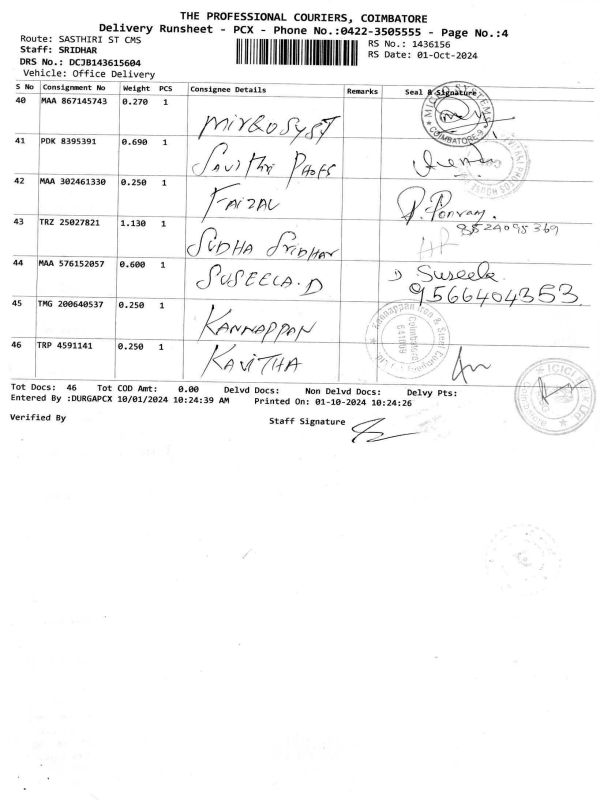 THE PROFESSIONAL COURIERS, COIMBATORE
Delivery Runsheet - PCX - Phone No.:0422-3505555 - Page No.:4
Route: SASTHIRI ST CMS
Staff: SRIDHAR
DRS No.: DCJB143615604
Vehicle: Office Delivery
RS No.: 1436156
RS Date: 01-Oct-2024
S No Consignment No Weight PCS Consignee Details Remarks Seal & Signature
40 MAA 867145743 0.270 1
MICRO SYSTEMS
COIMBATORE-9
41 PDK 8395391 0.690 1
42 MAA 302461330 0.250 1
FAIZAL
P. Ponraj.
43 TRZ 25027821 1.130 1
8524095369
SUDHA SRIDHAR
44 MAA 576152057 0.600 1
SUSEELA.D
D Suseela
9566404353
45 TMG 200640537 0.250 1
KANNAPPAN
Kannappan Iron & Steel Company
Coimbatore
641009
46 TRP 4591141 0.250 1
KAVITHA
ICICI
Coimbatore
Tot Docs: 46 Tot COD Amt: 0.00 Delvd Docs: Non Delvd Docs: Delvy Pts:
Entered By :DURGAPCX 10/01/2024 10:24:39 AM Printed On: 01-10-2024 10:24:26
Verified By Staff Signature